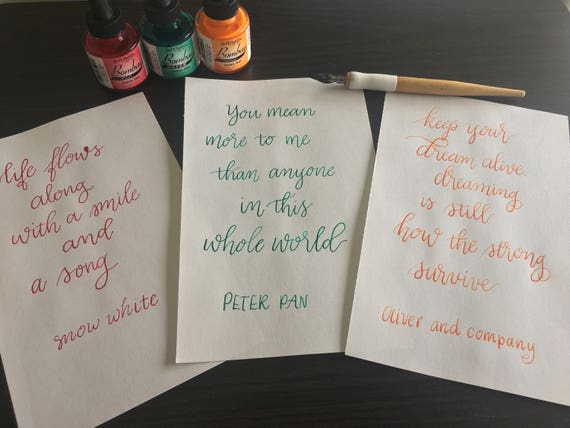 Bombay
Bombay
Bombay
life flows
along
with a smile
and
a song
snow white
You mean
more to me
than anyone
in this
whole world
PETER PAN
keep your
dream alive.
dreaming
is still
how the strong
survive
Oliver and company